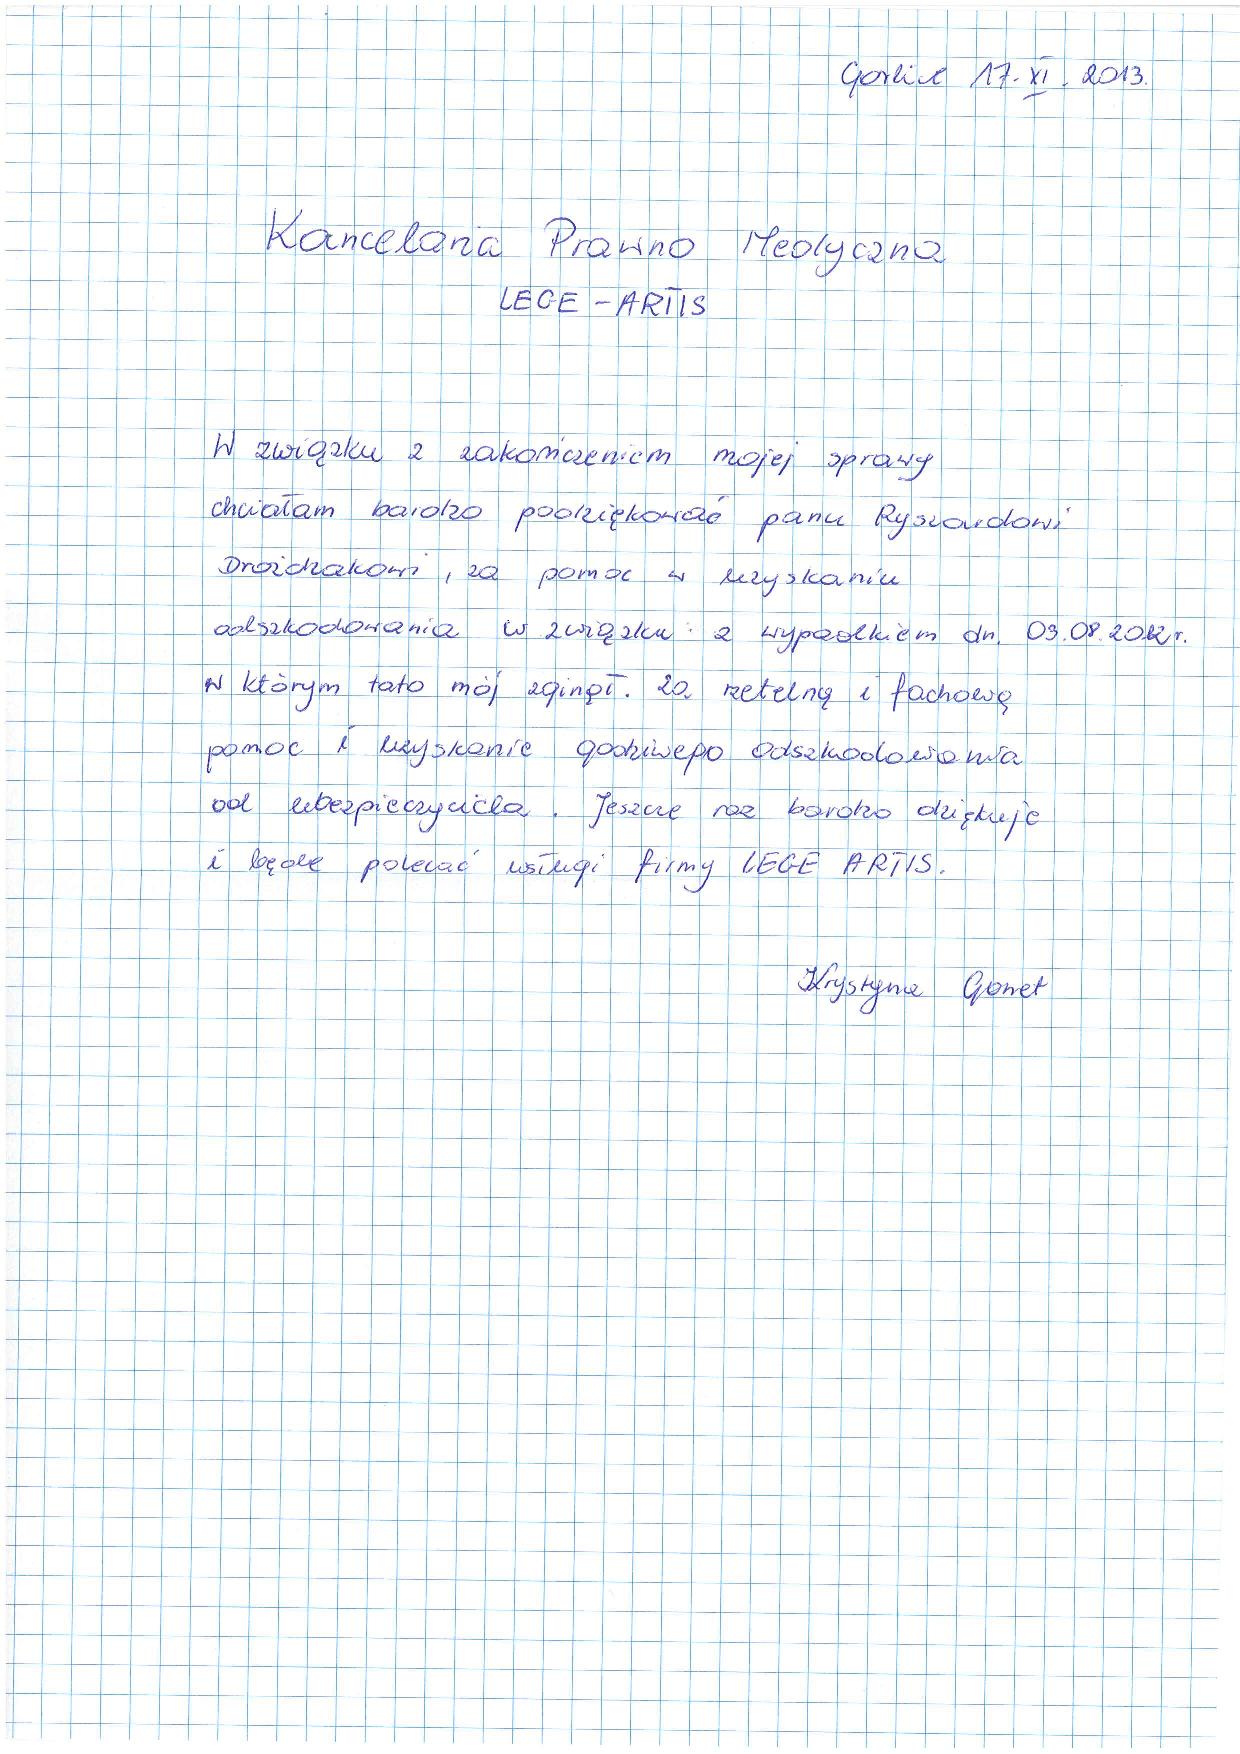 Gorlice 17.XI.2013.
Kancelaria Prawno Medyczna
LEGE - ARTIS
W związku z zakończeniem mojej sprawy
chciałam bardzo podziękować panu Ryszardowi
Droździakowi, za pomoc w uzyskaniu
odszkodowania w związku z wypadkiem dn. 03.08.2012r.
w którym tato mój zginął. Za rzetelną i fachową
pomoc i uzyskanie godziwego odszkodowania
od ubezpieczyciela. Jeszcze raz bardzo dziękuje
i będę polecać usługi firmy LEGE ARTIS.
Krystyna Gomet